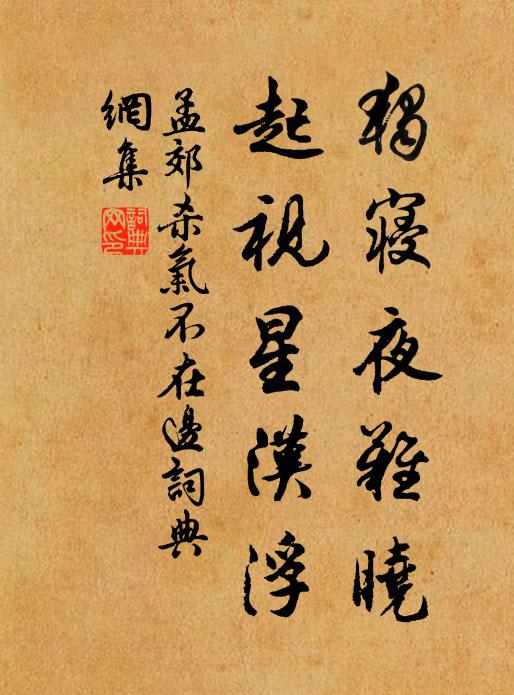 獨寢夜難曉
起視星漢浮
孟郊殺氣不在邊詞典
網集
詞典網印